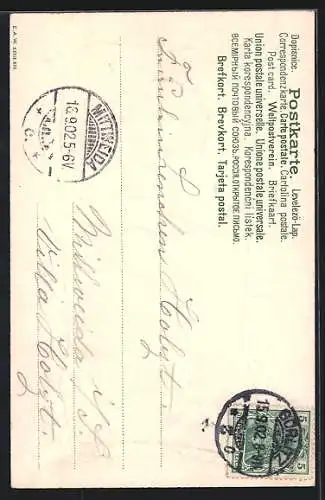 Dopisnice. Postkarte. Levelező-Lap.
Correspondenzkarte Carte postale. Cartolina postale.
Post card. Weltpostverein. Briefkaart.
Union postale universelle. Unione postale universale.
Karta korespondencyjna. Korespondenční lístek.
ВСЕМІРНЫЙ ПОЧТОВЫЙ СОЮЗЪ. РОССІЯ. ОТКРЫТОЕ ПИСЬМО.
Brefkort. Brevkort. Tarjeta postal.
5 5
15.9.02
MITTWEIDA
16.9.02.5-6V.
Fräulein
Holzt
Mittweida i/S
Villa Holzt